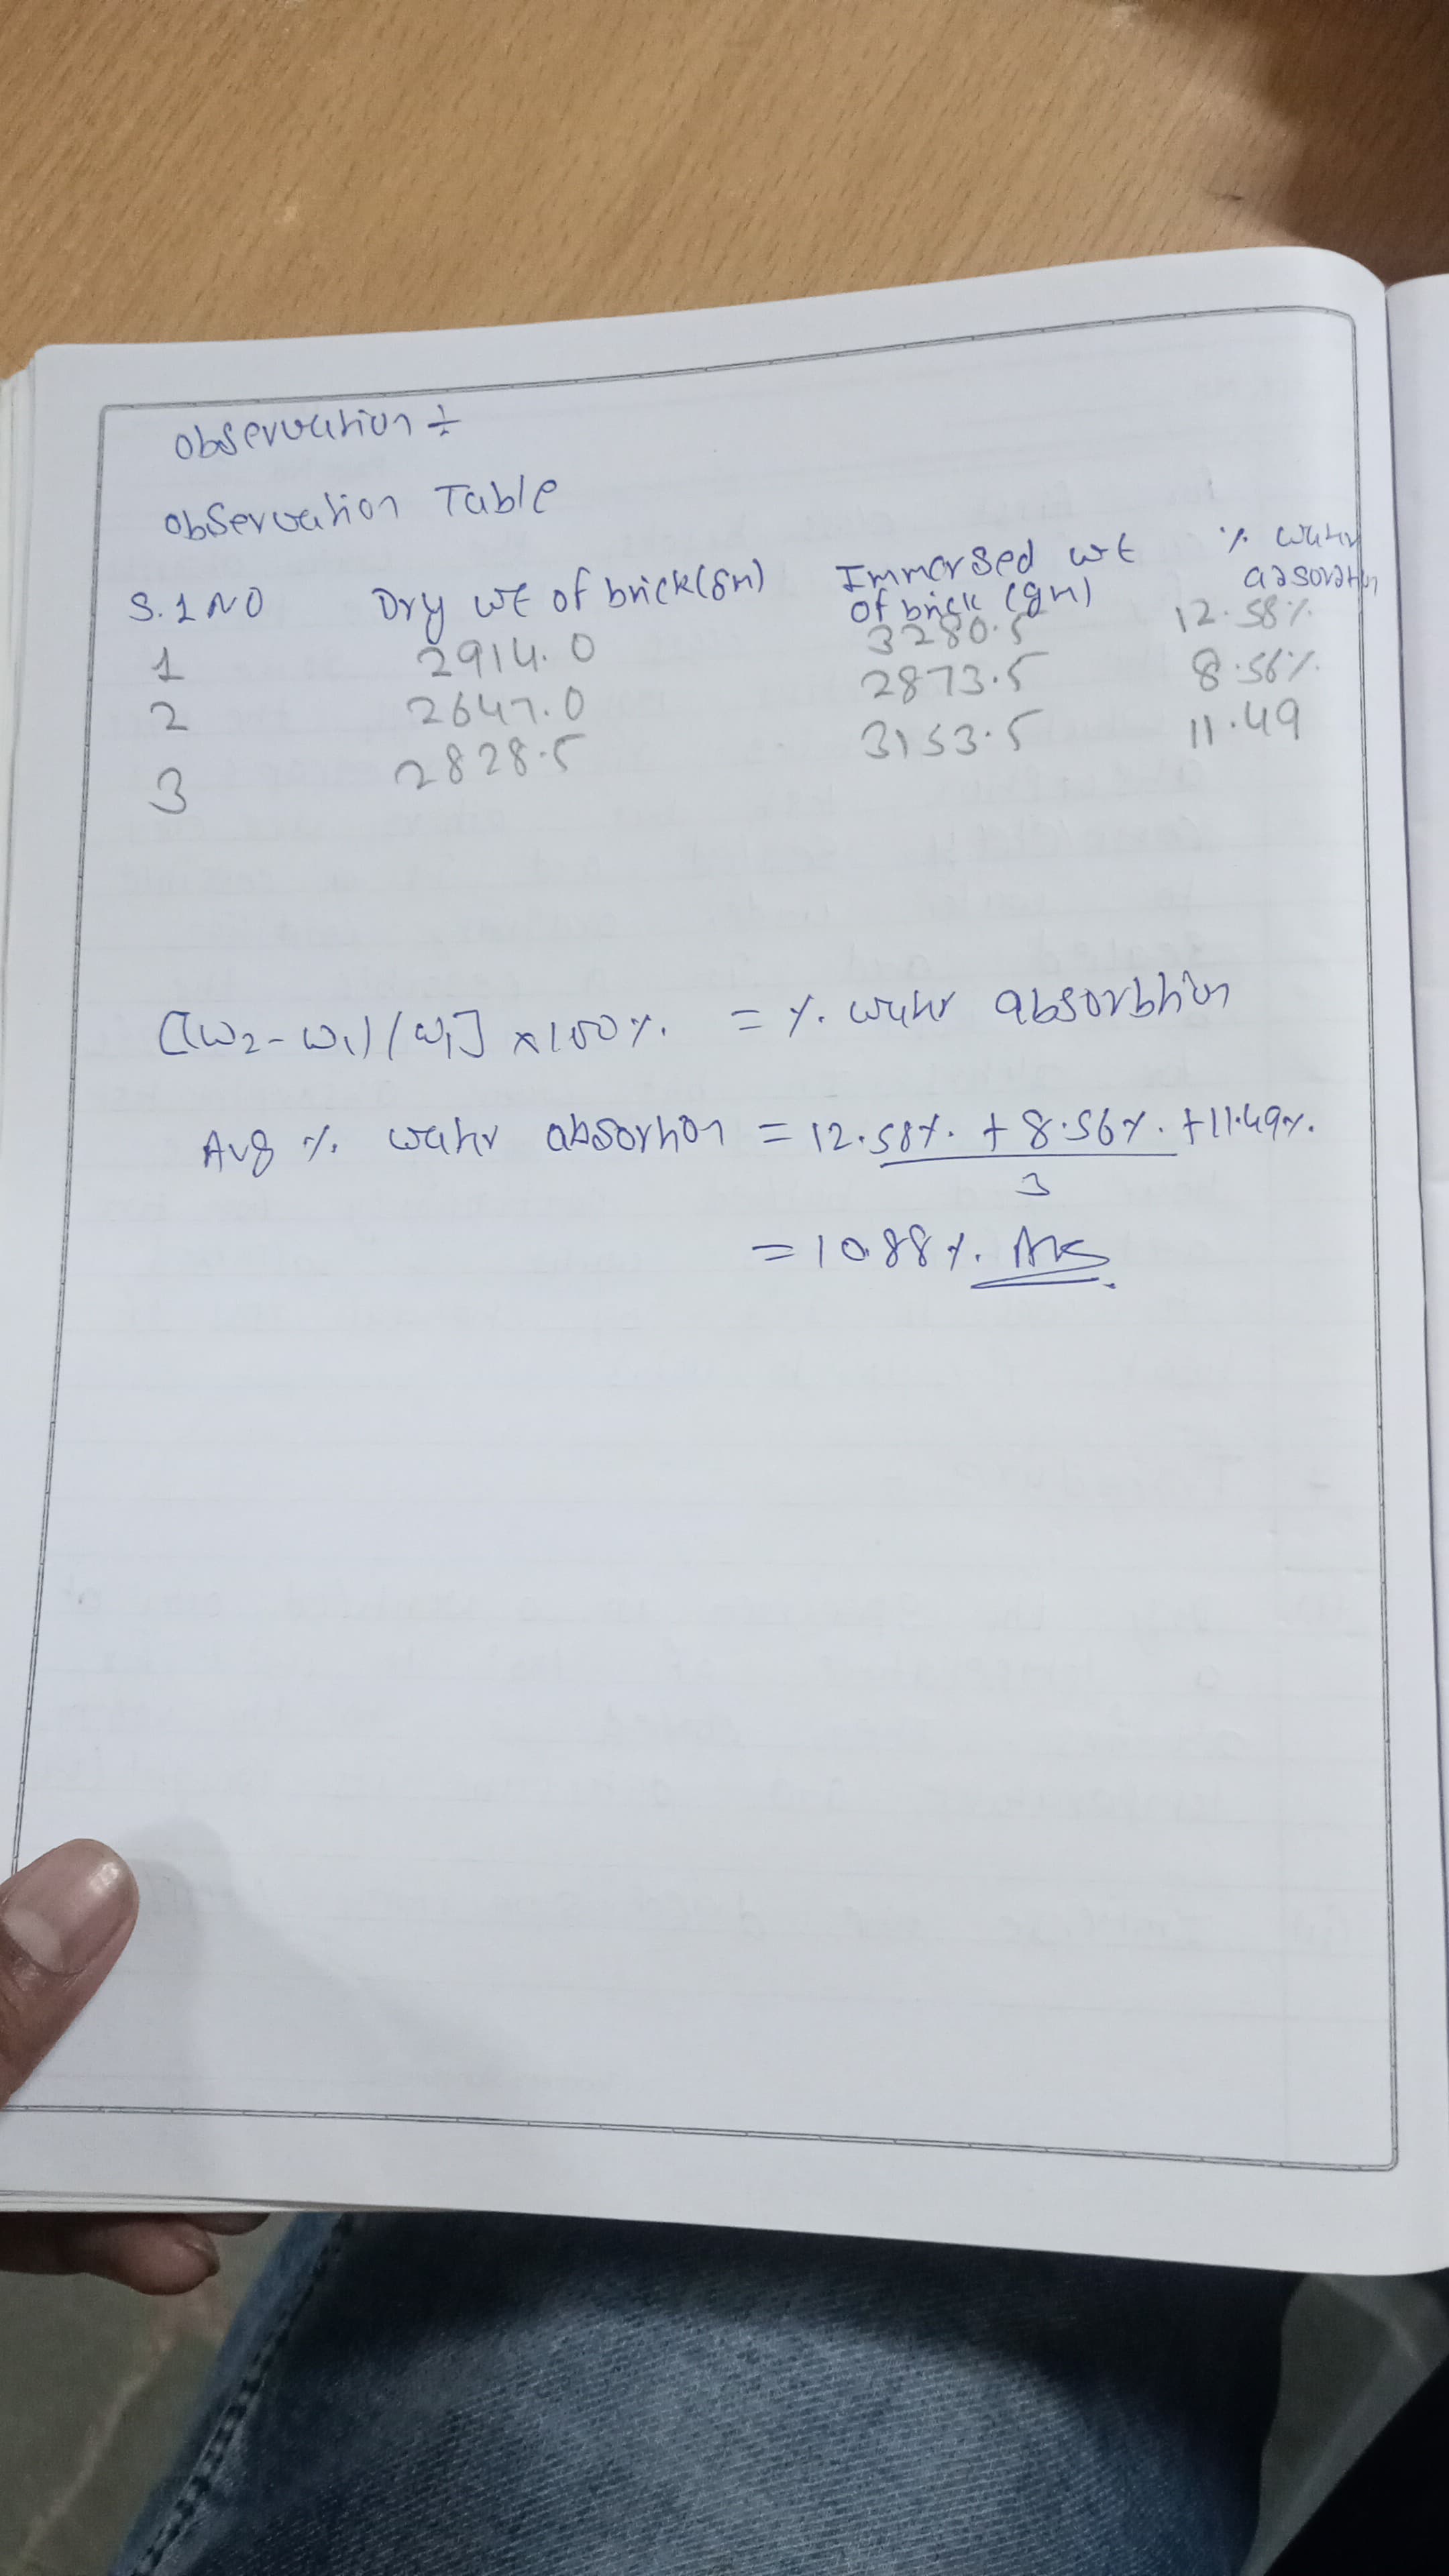 Observation ÷
Observation Table
S.1 NO Dry wt of brick(gm) Immersed wt of brick (gm) % water absorption
1 2914.0 3280.5 12.58%
2 2647.0 2873.5 8.56%
3 2828.5 3153.5 11.49
[(W2-W1)/W1] ×100% = % water absorbtion
Avg % water absortion = 12.58% + 8.56% + 11.49%
3
= 10.88% Ans